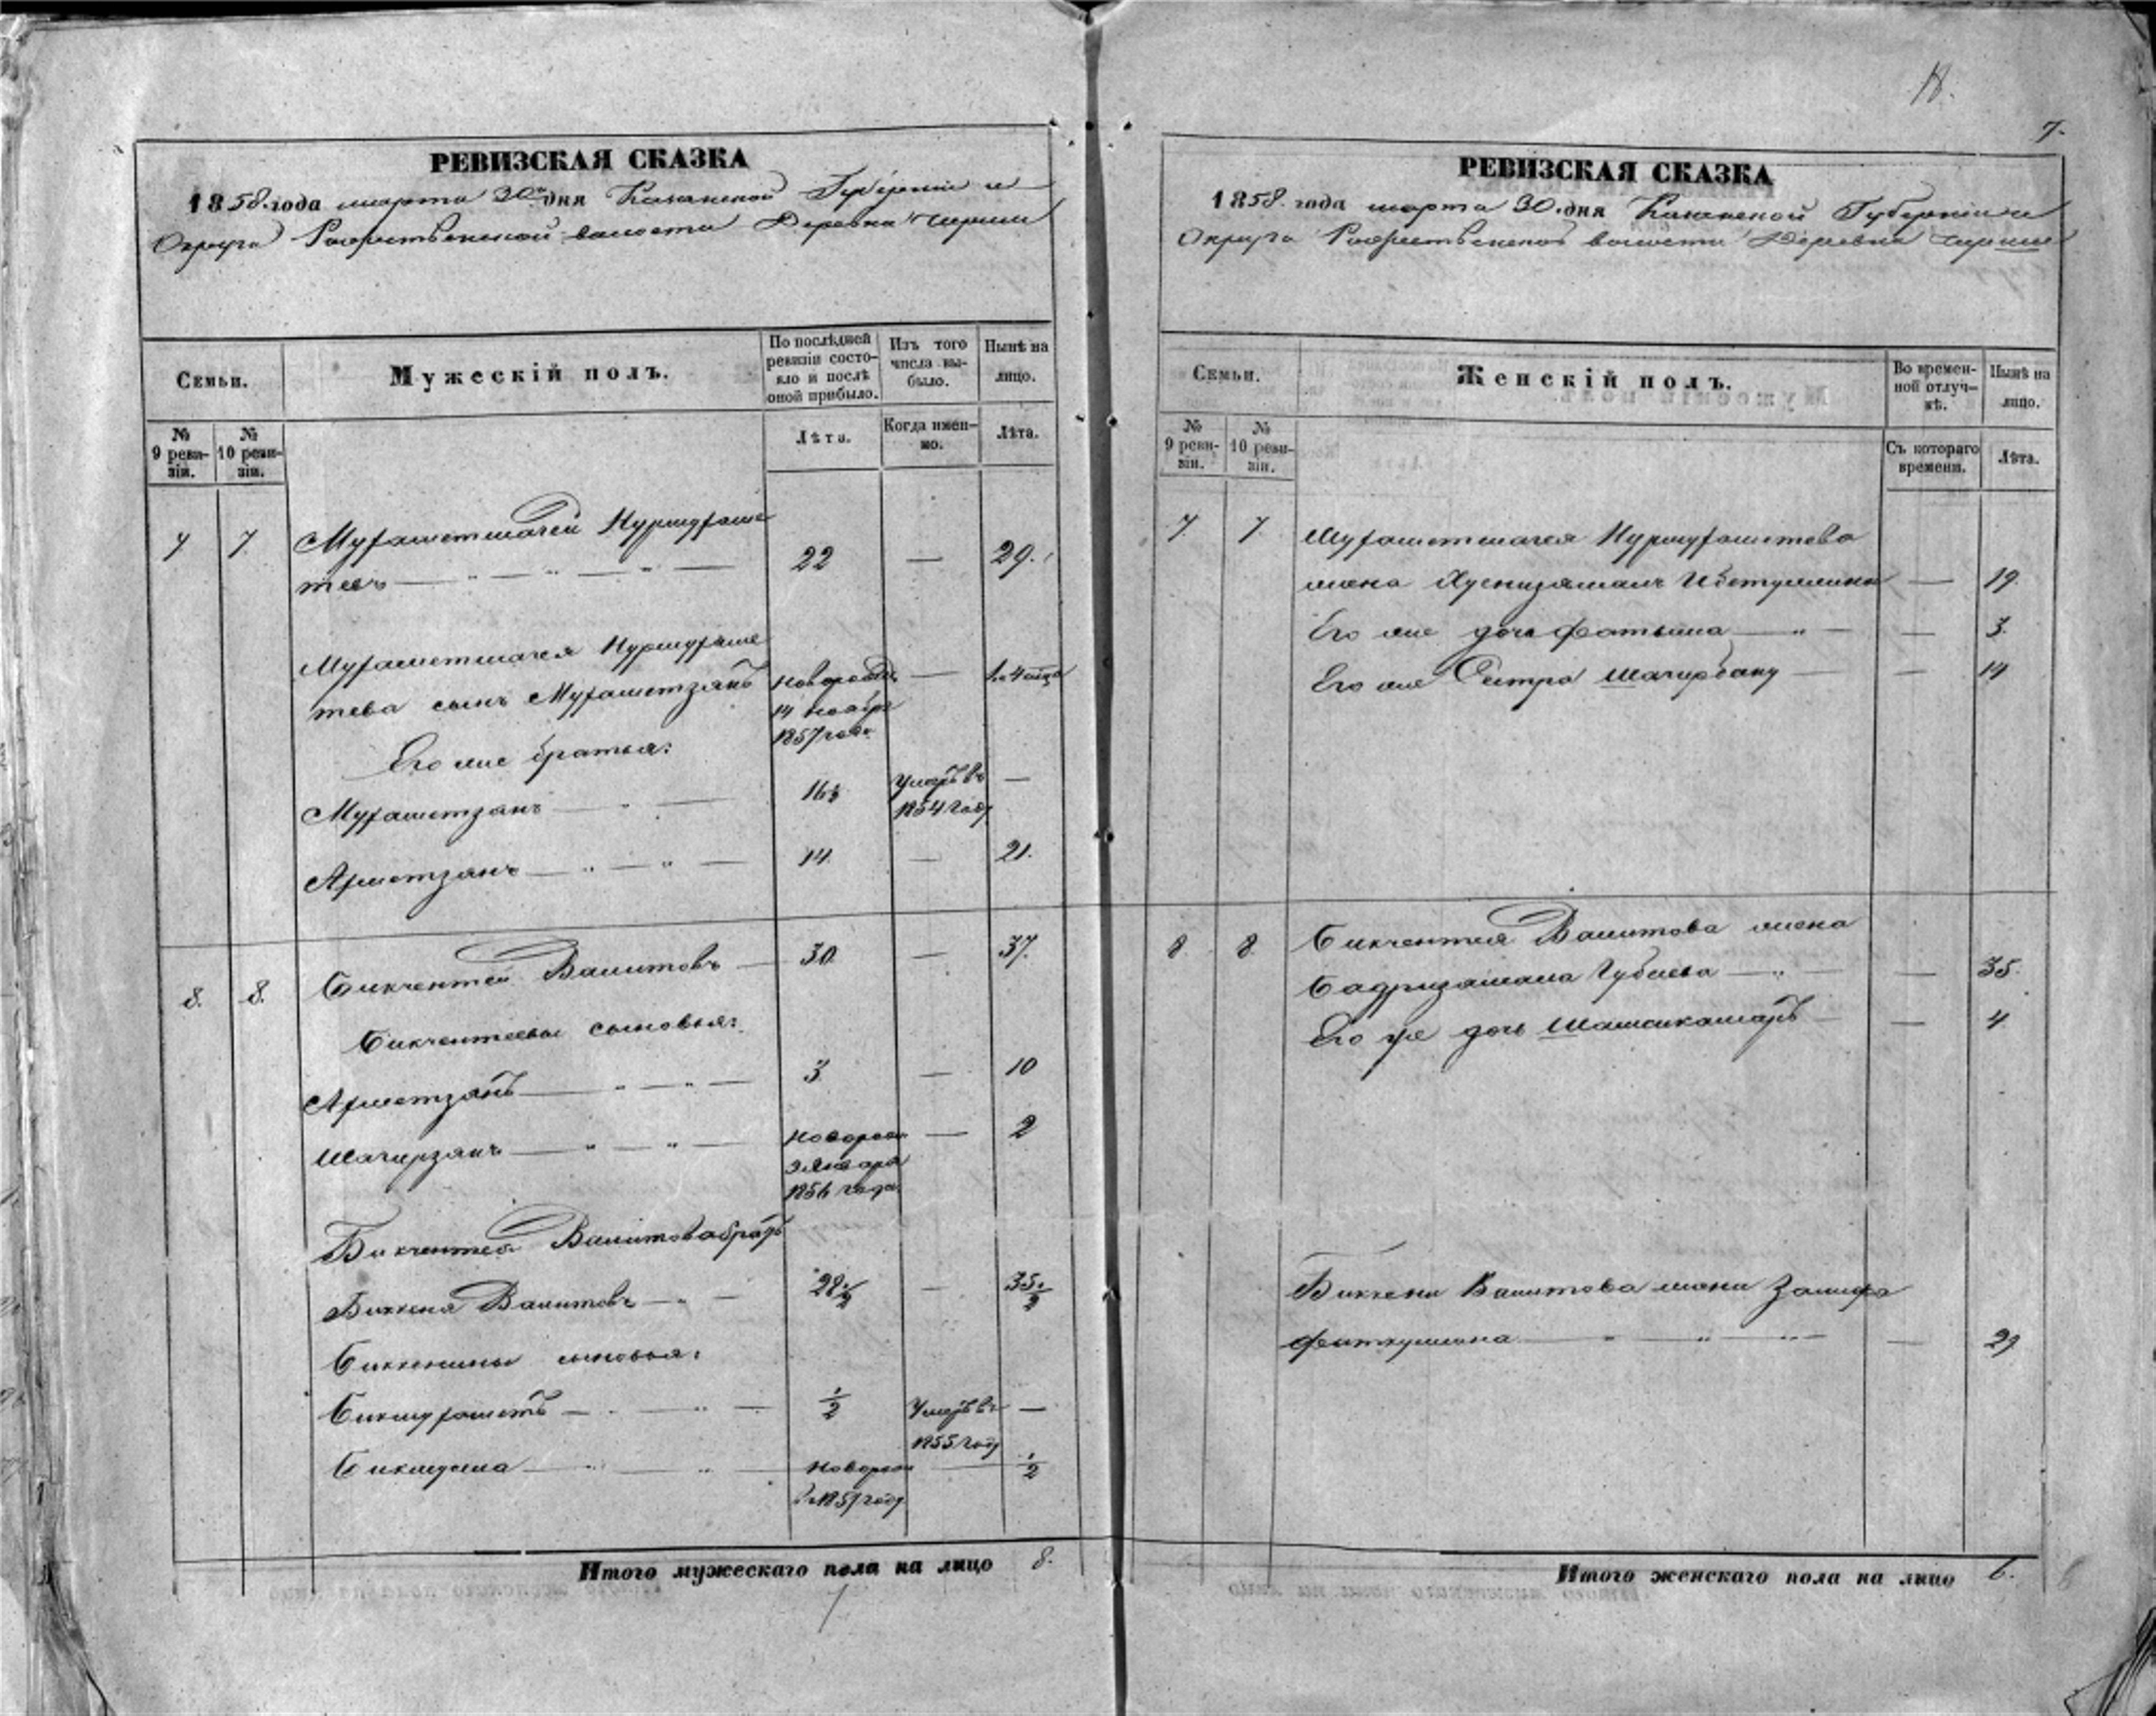 18.
7.
РЕВИЗСКАЯ СКАЗКА
1858 года марта 30 дня Казанской Губернии и
Округа Рождественской волости Деревни
Семьи.
Мужескій полъ.
По послѣдней ревизіи состояло и послѣ оной прибыло.
Изъ того числа выбыло.
Нынѣ на лицо.
№ 9 ревизіи.
№ 10 ревизіи.
Лѣта.
Когда именно.
Лѣта.
7 7 Мухаметшагей Нурмухаме
тевъ 22 — 29.
Мухаметшагея Нурмухаме
тева сынъ Мухаметзянъ новорожд. —
14 ноября
1857 года
Его же братья:
Мухаметзянъ 16½ Умеръ въ —
1854 году
Ахметзянъ 14. — 21.
8. 8. Бикчентей Вашитовъ 30. — 37.
Бикчентеевы сыновья:
Ахметзянъ 3 — 10
Шагирзянъ новорож — 2
Января
1856 года
Бикчентея Вашитова братъ
Биккеня Вашитовъ 28½ — 35½
Биккенины сыновья:
Бикмухаметъ ½ Умеръ въ —
1855 году
новорож — ½
въ 1857 году
Итого мужескаго пола на лицо 8.
РЕВИЗСКАЯ СКАЗКА
1858 года марта 30 дня Казанской Губернии и
Округа Рождественской волости Деревни
Семьи.
Женскій полъ.
Во временной отлучкѣ.
Нынѣ на лицо.
№ 9 ревизіи.
№ 10 ревизіи.
Съ котораго времени.
Лѣта.
7. 7. Мухаметшагея Нурмухаметева
жена Хуснизямалъ — 19.
Его же дочь Фатыма — 3.
Его же Сестра Шагирбану — 14
8 8. Бикчентея Вашитова жена
Бадризямала Губаева — 35.
Его же дочь Шамсикамаръ — 4
Биккени Вашитова жена Залифа
Фаткуллина — 29
Итого женскаго пола на лицо 6.